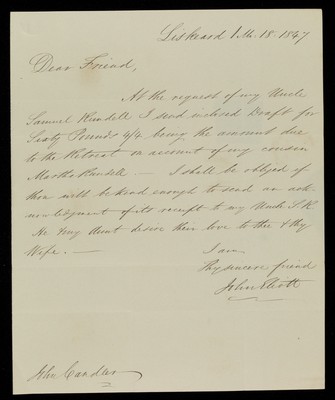 Liskeard 1 Mo. 18. 1847
Dear Friend,
At the request of my Uncle
Samuel Rundell I send inclosed Draft for
Sixty Pounds 4/2 being the amount due
to the Retreat on account of my cousin
Martha Rundell. — I shall be obliged if
thou will be kind enough to send an ack-
nowledgment of its receipt to my Uncle S. R
He & my Aunt desire their love to thee & thy
Wife. —
I am
Thy sincere friend
John Eliott
John Candler